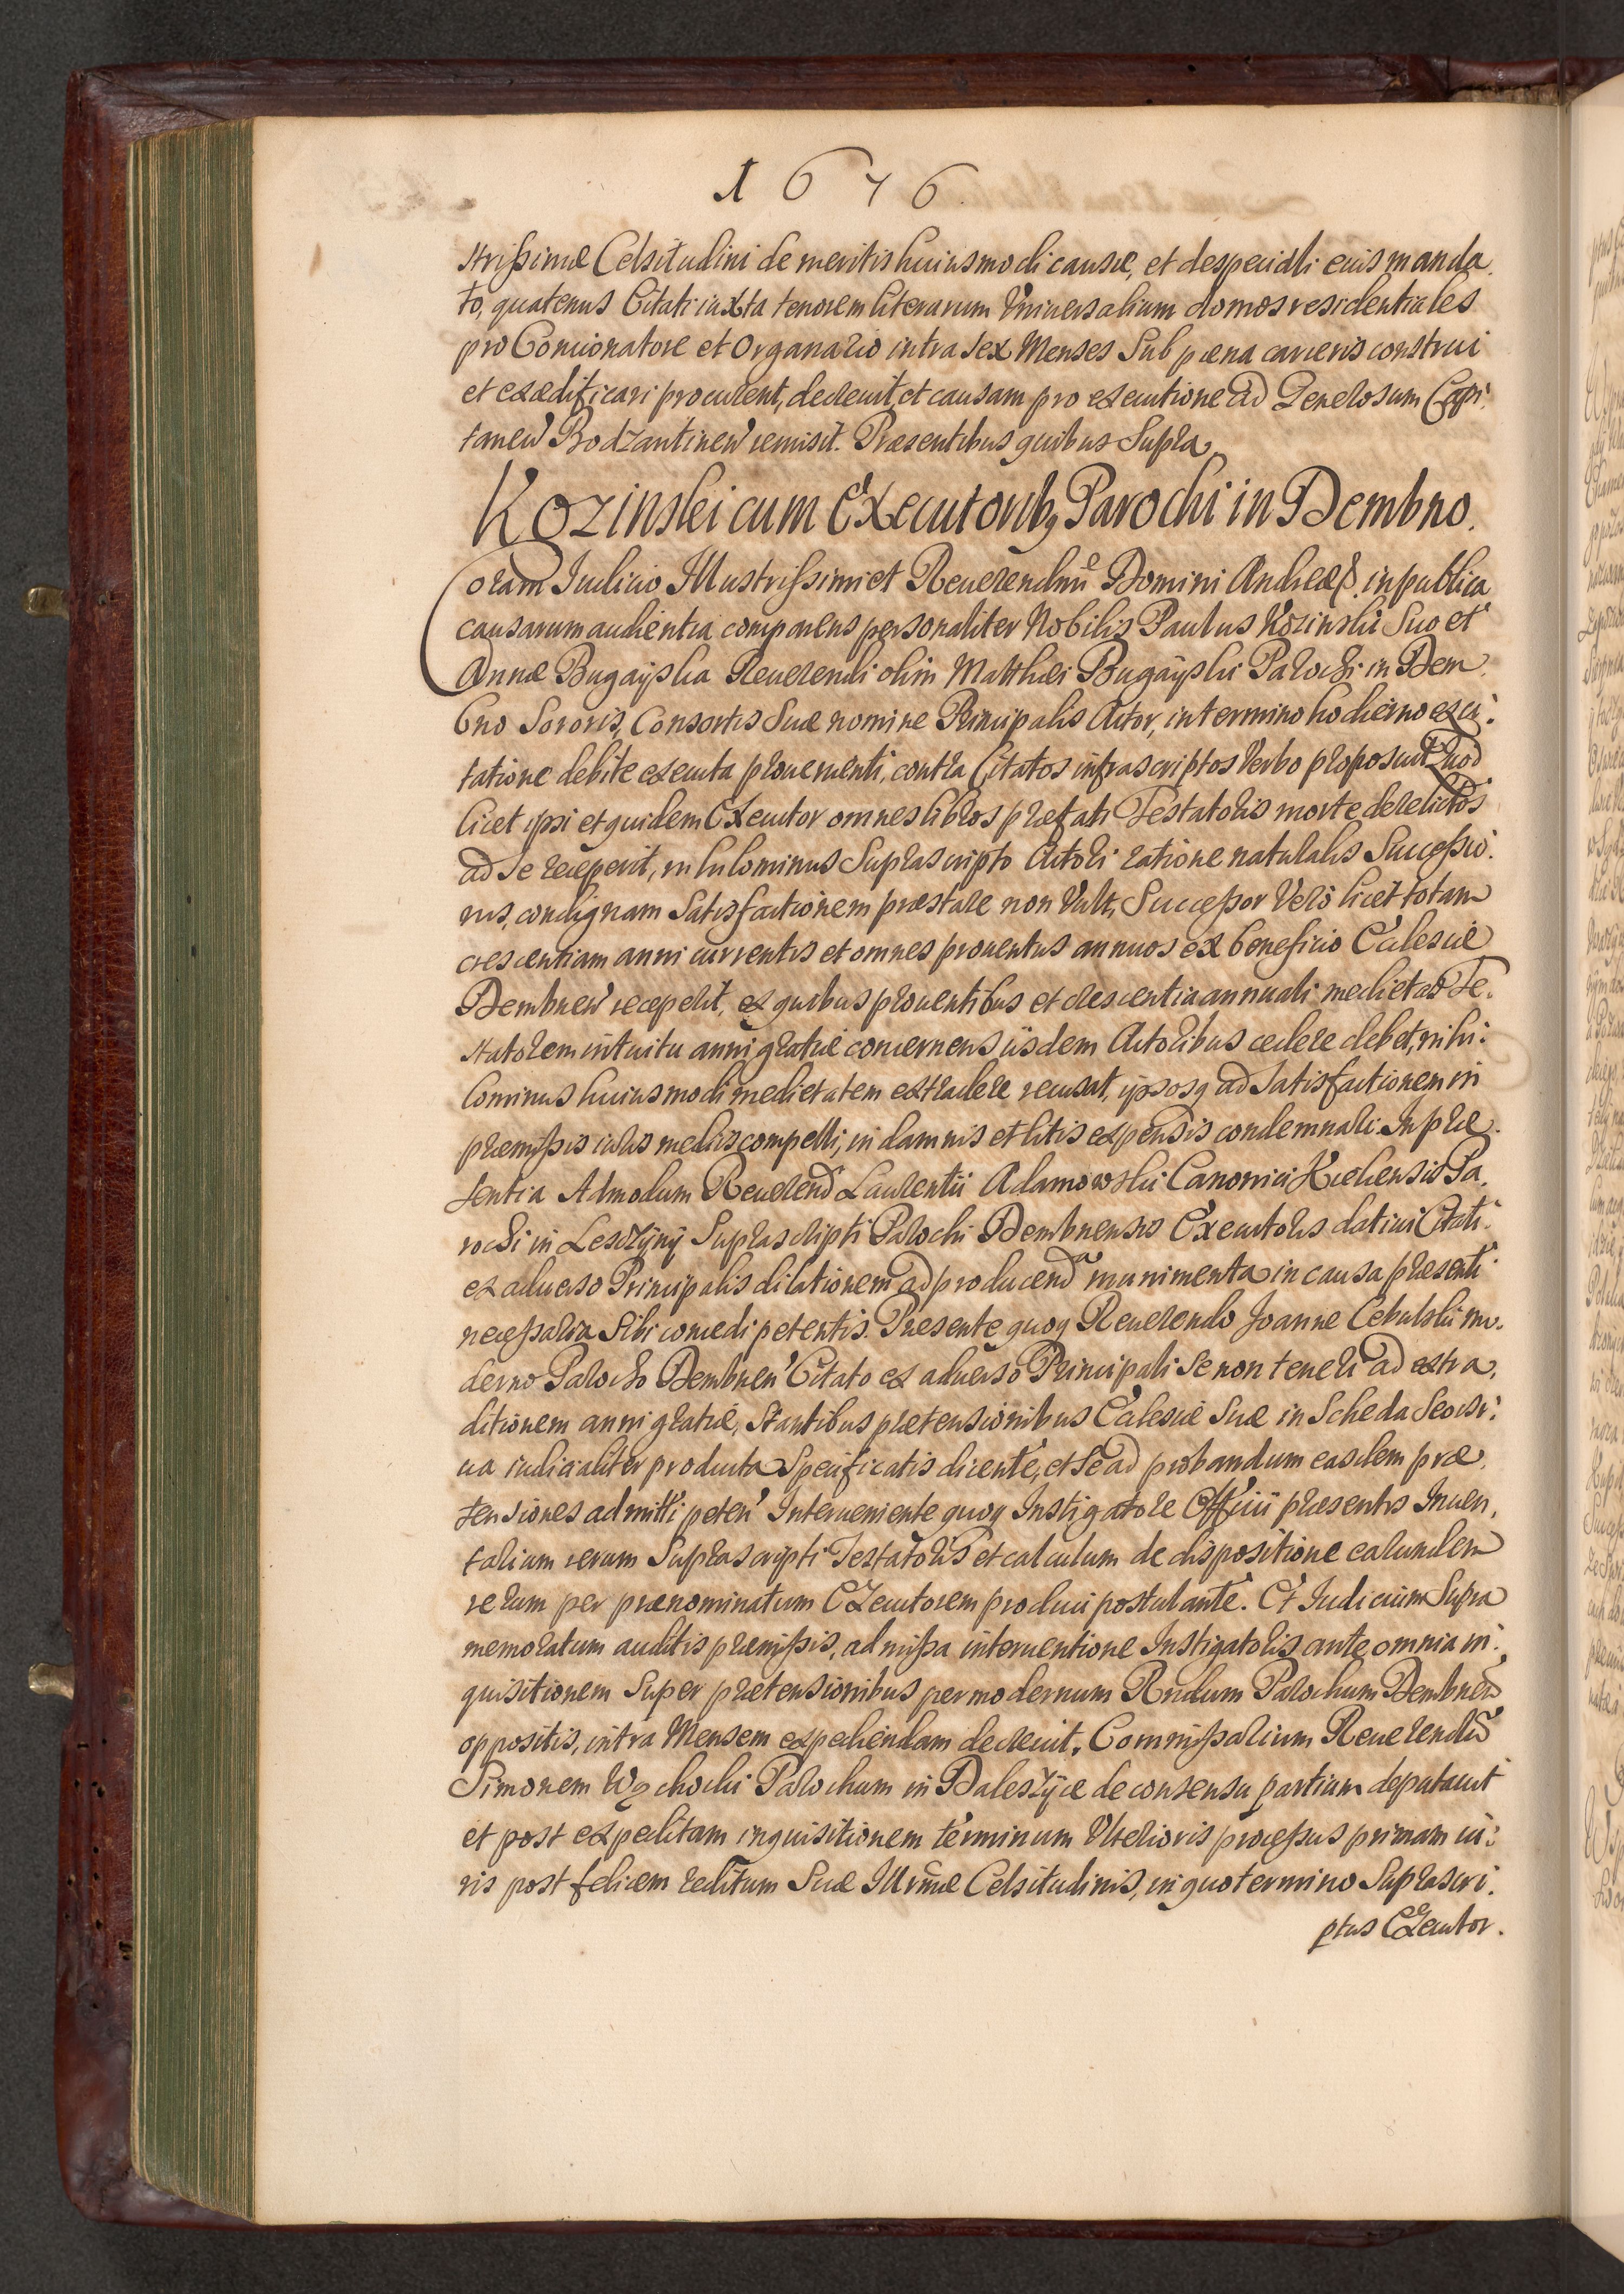 1676.
strissimæ Celsitudini de meritis huiusmodi causæ, et de speciali eius manda.
to, quatenus Citati iuxta tenorem literarum Vniuersalium domos residentiales
pro Concionatore et Organario intra sex Menses Sub pœna carceris construi
et exædificari procurent, decreuit, et causam pro executione ad Generosum Capi.
taneũ Bodzantineñ remisit. Præsentibus quibus Supra
Kozinski cum Executorib9 Parochi in Dembno.
Coram Iudicio Illustrissimi et Reuerendmi Domini Andreæ &. in publica
causarum audientia comparens personaliter Nobilis Paulus Kozinski Suo et
Annæ Bugayska Reuerendi olim Matthæi Bugayski Parochi in Dem.
bno Sororis, Consortis Suæ nomine Principalis Actor, in termino hodierno ex ci:
tatione debite executa prouenienti, contra Citatos infrascriptos Verbo proposuit Quod
licet ipsi et quidem Executor omnes libros præfati Testatoris morte derelictos
ad se receperit, nihilominus Suprascripto Actori ratione naturalis Successio.
nis, condignam Satisfactionem præstare non Vult, Successor Verò licet totam
crescentiam anni currentis et omnes prouentus annuos ex beneficio Ecclesiæ
Dembneñ receperit, ex quibus prouentibus et crescentia annuali medietas Te.
statorem intuitu anni gratiæ concernens iisdem Actoribus cedere debet, nihi:
lominus huiusmodi medietatem extradere recusat, ipsosq ad Satisfactionem in
præmissis iuris mediis compelli, in damnis et litis expensis condemnari. In præ.
sentia Admodum Reuerend Laurentii Adamowski Canonici Kielcensis Pa.
rochi in Lesczyny Suprascripti Parochi Dembnensis Executoris datiui Citati
ex aduerso Principalis dilationem ad producenda munimenta in causa præsenti
necessaria Sibi concedi petentis. Præsente quoq Reuerendo Joanne Cebulski mo.
derno Parocho Dembneñ Citato ex aduerso Principali Se non teneri ad extra.
ditionem anni gratiæ, Stantibus prætensionibus Ecclesiæ Suæ in Scheda Seorsi:
ua iudicialiter producta Specificatis dicente, et Se ad probandum easdem præ.
tensiones admitti peteñ Interueniente quoq Instigatore Officii præsentis Inuen.
tarium rerum Suprascripti Testatoris et calculum de dispositione earundem
rerum per prænominatum Executorem produci postulante. Et Iudicium Supra
memoratum auditis præmissis, admissa interuentione Instigatoris ante omnia in:
quisitionem Super prætensionibus per modernum Rndum Parochum Dembneñ
oppositis, intra Mensem expediendam decreuit, Commissarium Reuerendũ
Simonem Parochum in Daleszyce de consensu partium deputauit
et post expeditam inquisitionem terminum Vlterioris processus primam iu:
ris post felicem reditum Suæ Illrmæ Celsitudinis, in quo termino Suprascri.
ptus Executor.